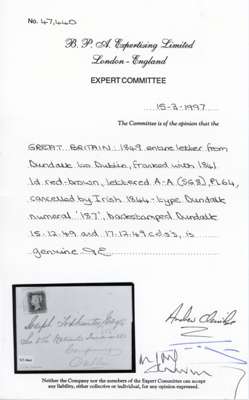 No. 47,440
B. P. A. Expertising Limited
London - England
EXPERT COMMITTEE
15-3-1997
The Committee is of the opinion that the
GREAT BRITAIN 1849 entire letter from
Dundalk to Dublin, franked with 1841
1d. red-brown, lettered A-A (SG8), PL.64,
cancelled by Irish 1844-type Dundalk
numeral '187', backstamped Dundalk
15.12.49 and 17.12.49 c.d.s's, is
genuine
Joseph
Neither the Company nor the members of the Expert Committee can accept
any liability, either collective or individual, for any opinion expressed.